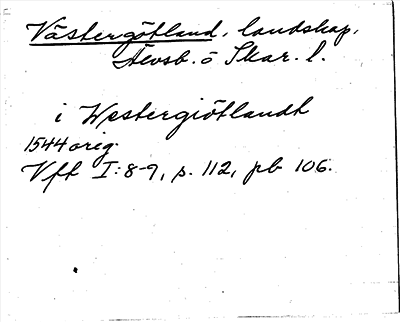 Västergötland, landskap,
Älvsb. o Skar. l.
i Westergiötlandt
1544 orig.
Vft I:8-9, s. 112, pb 106.